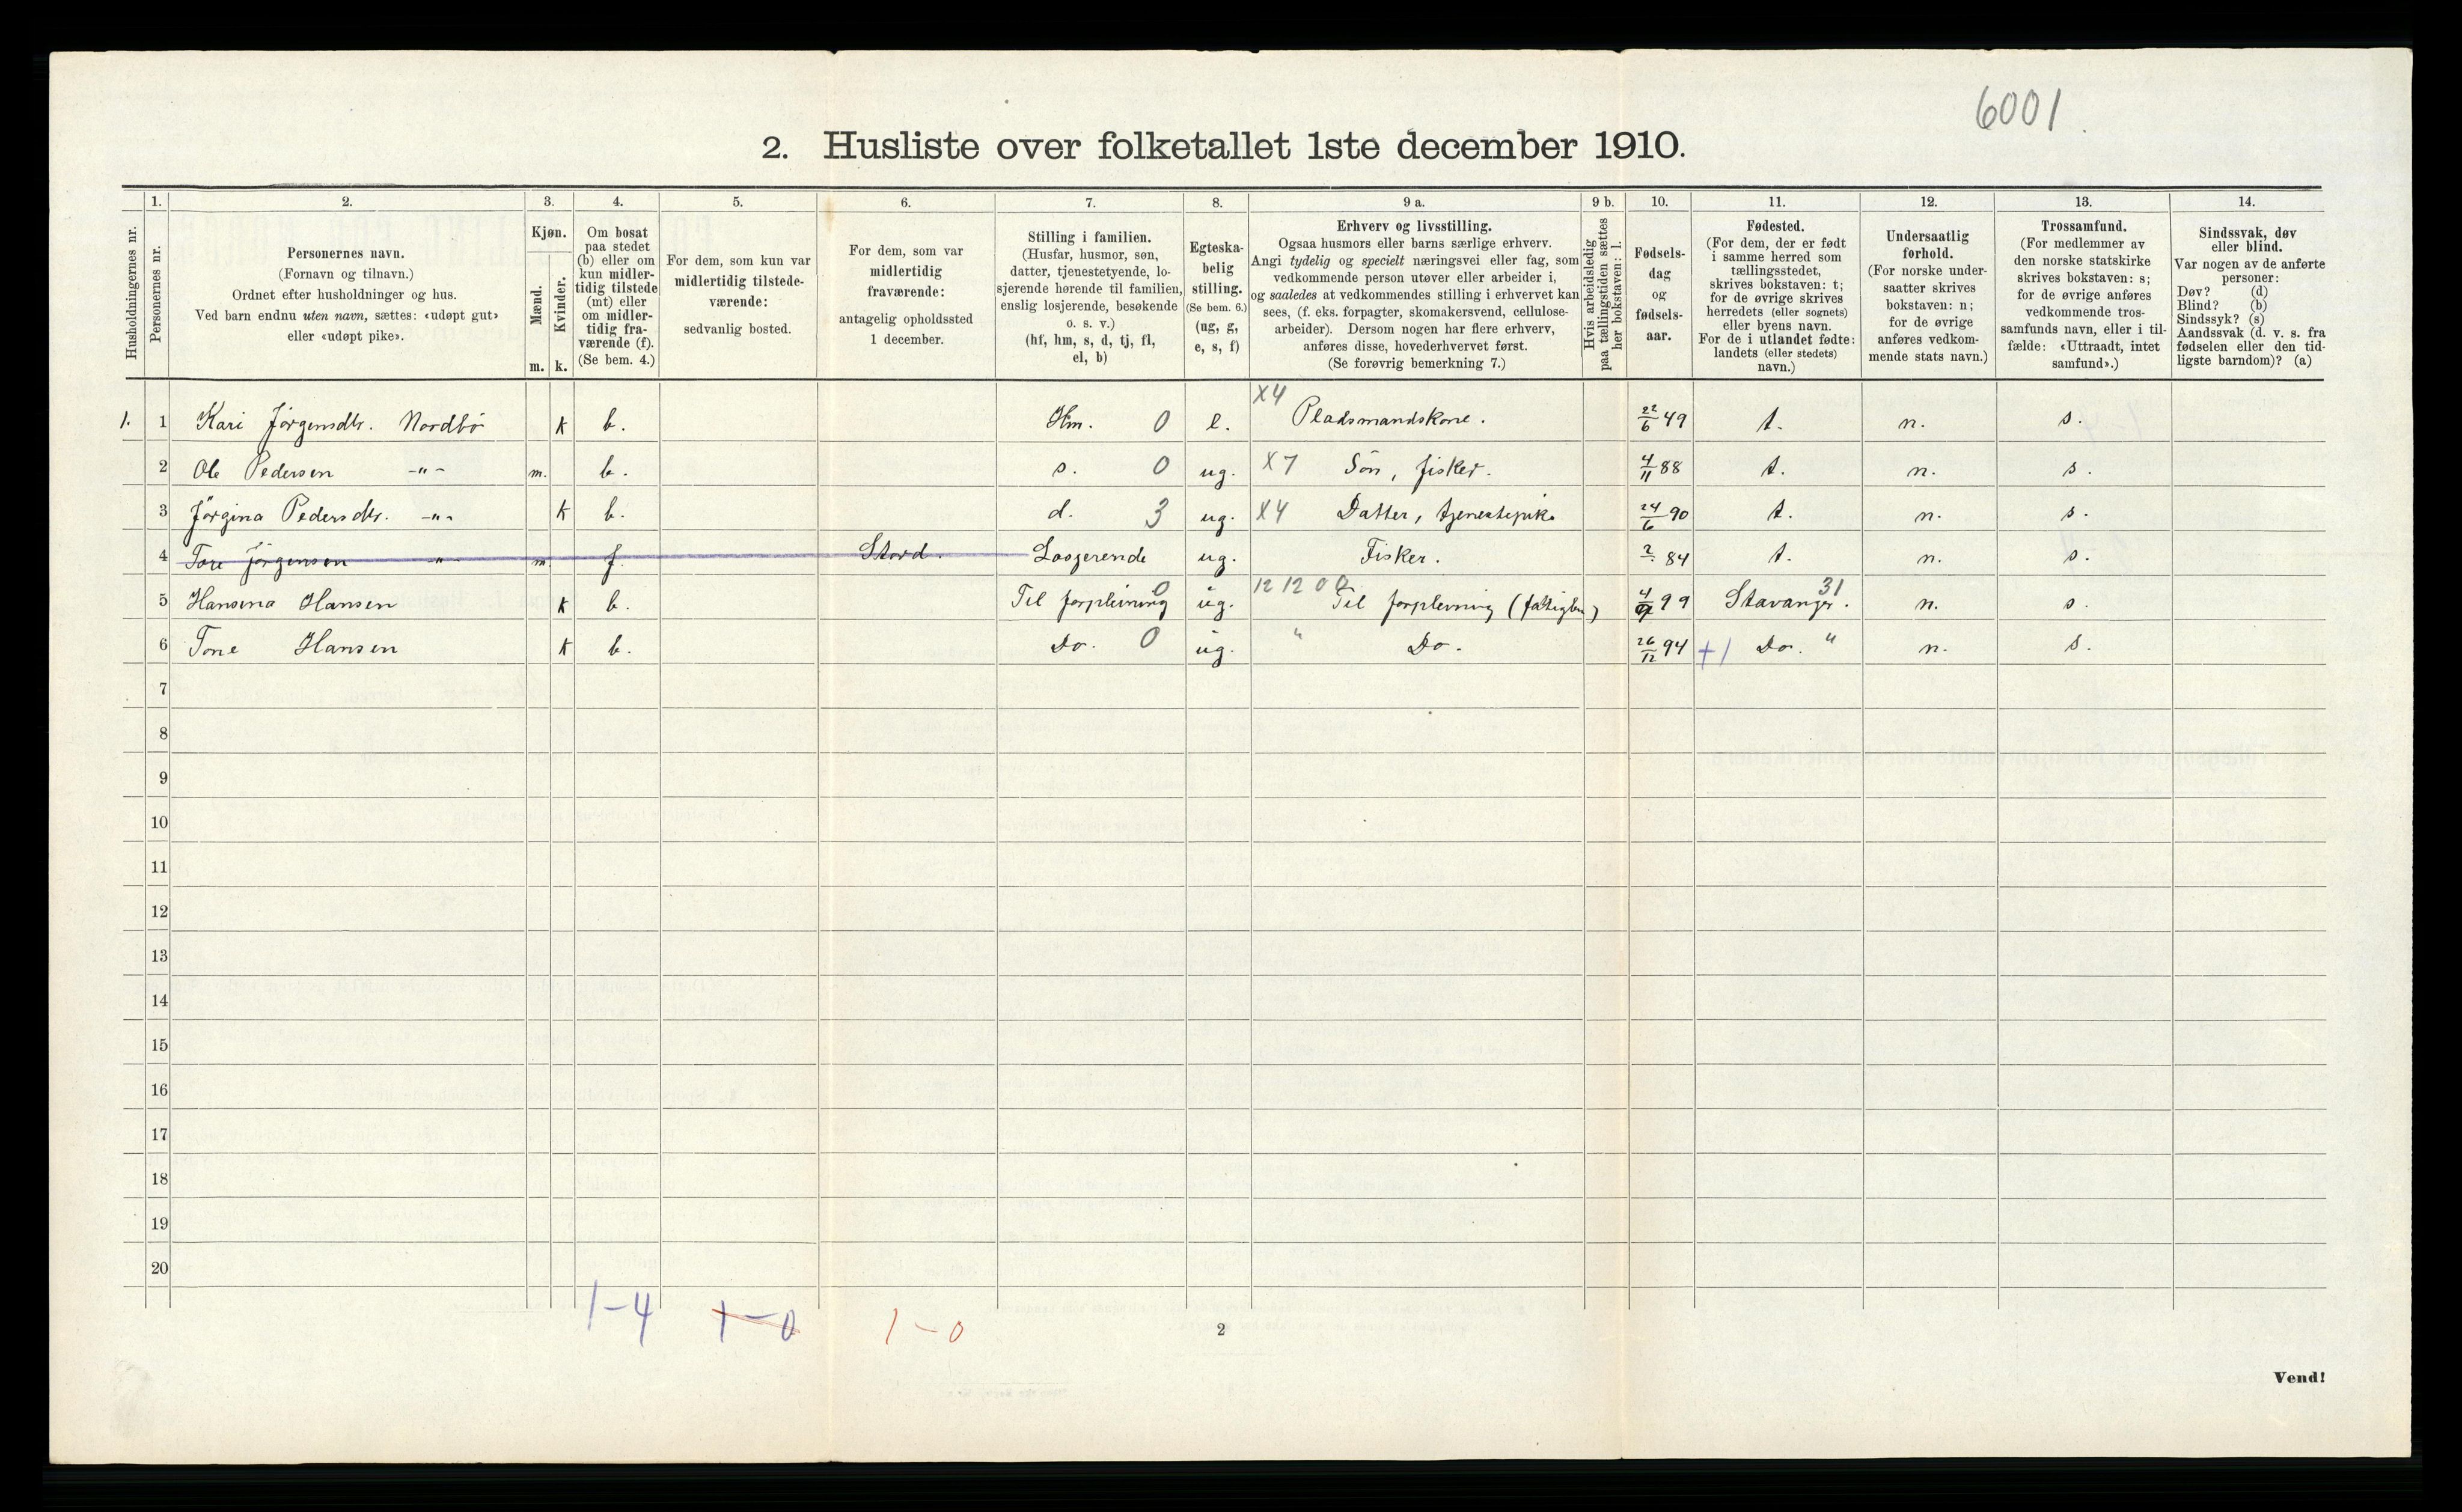 6001
2. Husliste over folketallet 1ste december 1910.
Husholdningernes nr.
1.
Personernes nr.
2.
Personernes navn.
(Fornavn og tilnavn.)
Ordnet efter husholdninger og hus.
Ved barn endnu uten navn, sættes: «udøpt gut»
eller «udøpt pike».
3.
Kjøn.
Mænd.
Kvinder.
m. k.
4.
Om bosat
paa stedet
(b) eller om
kun midler-
tidig tilstede
(mt) eller
om midler-
tidig fra-
værende (f).
(Se bem. 4.)
5.
For dem, som kun var
midlertidig tilstede-
værende:
sedvanlig bosted.
6.
For dem, som var
midlertidig
fraværende:
antagelig opholdssted
1 december.
7.
Stilling i familien.
(Husfar, husmor, søn,
datter, tjenestetyende, lo-
sjerende hørende til familien,
enslig losjerende, besøkende
o. s. v.)
(hf, hm, s, d, tj, fl,
el, b)
8.
Egteska-
belig
stilling.
(Se bem. 6.)
(ug, g,
e, s, f)
9 a.
Erhverv og livsstilling.
Ogsaa husmors eller barns særlige erhverv.
Angi tydelig og specielt næringsvei eller fag, som
vedkommende person utøver eller arbeider i,
og saaledes at vedkommendes stilling i erhvervet kan
sees, (f. eks. forpagter, skomakersvend, cellulose-
arbeider). Dersom nogen har flere erhverv,
anføres disse, hovederhvervet først.
(Se forøvrig bemerkning 7.)
9 b.
Hvis arbeidsledig
paa tællingstiden sættes
her bokstaven: l.
10.
Fødsels-
dag
og
fødsels-
aar.
11.
Fødested.
(For dem, der er født
i samme herred som
tællingsstedet,
skrives bokstaven: t;
for de øvrige skrives
herredets (eller sognets)
eller byens navn.
For de i utlandet fødte:
landets (eller stedets)
navn.)
12.
Undersaatlig
forhold.
(For norske under-
saatter skrives
bokstaven: n;
for de øvrige
anføres vedkom-
mende stats navn.)
13.
Trossamfund.
(For medlemmer av
den norske statskirke
skrives bokstaven: s;
for de øvrige anføres
vedkommende tros-
samfunds navn, eller i til-
fælde: «Uttraadt, intet
samfund».)
14.
Sindssvak, døv
eller blind.
Var nogen av de anførte
personer:
Døv? (d)
Blind? (b)
Sindssyk? (s)
Aandssvak (d. v. s. fra
fødselen eller den tid-
ligste barndom)? (a)
1. 1 Kari Jörgensdtr. Nordbö k b. Hm. 0 e. X4 Pladsmandskone. 22/6 49 t. n. s.
2 Ole Pedersen -"- m. b. s. 0 ug. X7 Sön, fisker. 4/11 88 t. n. s.
3 Jörgina Pedersdtr. -"- k b. d. 3 ug. X4 Datter, tjenestepik. 24/6 90 t. n. s.
4 Tore Jörgensen -"- m. f. Stord. Losjerende ug. Fisker. 2 84 t. n. s.
5 Hansina Hansen k b. Til forplevning 0 ug. 12 12 0 Til forplevning (fattigbm) 4/9 99 Stavanger. 31 n. s.
6 Tone Hansen k b. Do. 0 ug. " Do. 26/12 94 +1 Do. " n. s.
7
8
9
10
11
12
13
14
15
16
17
18
19
20
1-4 1-0 1-0
2
Vend!